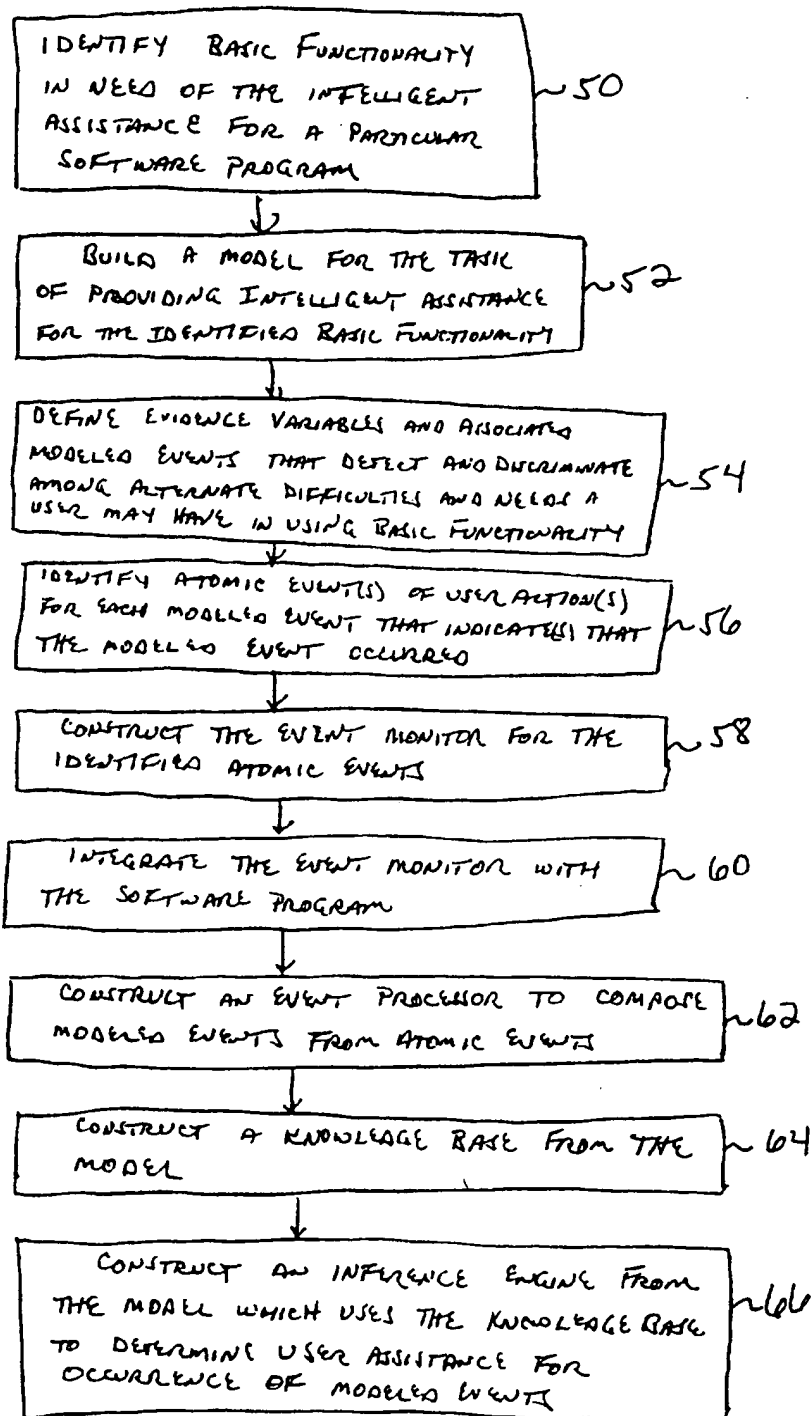 IDENTIFY BASIC FUNCTIONALITY
IN NEED OF THE INTELLIGENT
ASSISTANCE FOR A PARTICULAR
SOFTWARE PROGRAM
~50
BUILD A MODEL FOR THE TASK
OF PROVIDING INTELLIGENT ASSISTANCE
FOR THE IDENTIFIED BASIC FUNCTIONALITY
~52
DEFINE EVIDENCE VARIABLES AND ASSOCIATED
MODELED EVENTS THAT DETECT AND DISCRIMINATE
AMONG ALTERNATE DIFFICULTIES AND NEEDS A
USER MAY HAVE IN USING BASIC FUNCTIONALITY
~54
IDENTIFY ATOMIC EVENT(S) OF USER ACTION(S)
FOR EACH MODELED EVENT THAT INDICATE(S) THAT
THE MODELED EVENT OCCURRED
~56
CONSTRUCT THE EVENT MONITOR FOR THE
IDENTIFIED ATOMIC EVENTS
~58
INTEGRATE THE EVENT MONITOR WITH
THE SOFTWARE PROGRAM
~60
CONSTRUCT AN EVENT PROCESSOR TO COMPOSE
MODELED EVENTS FROM ATOMIC EVENTS
~62
CONSTRUCT A KNOWLEDGE BASE FROM THE
MODEL
~64
CONSTRUCT AN INFERENCE ENGINE FROM
THE MODEL WHICH USES THE KNOWLEDGE BASE
TO DETERMINE USER ASSISTANCE FOR
OCCURRENCE OF MODELED EVENTS
~66